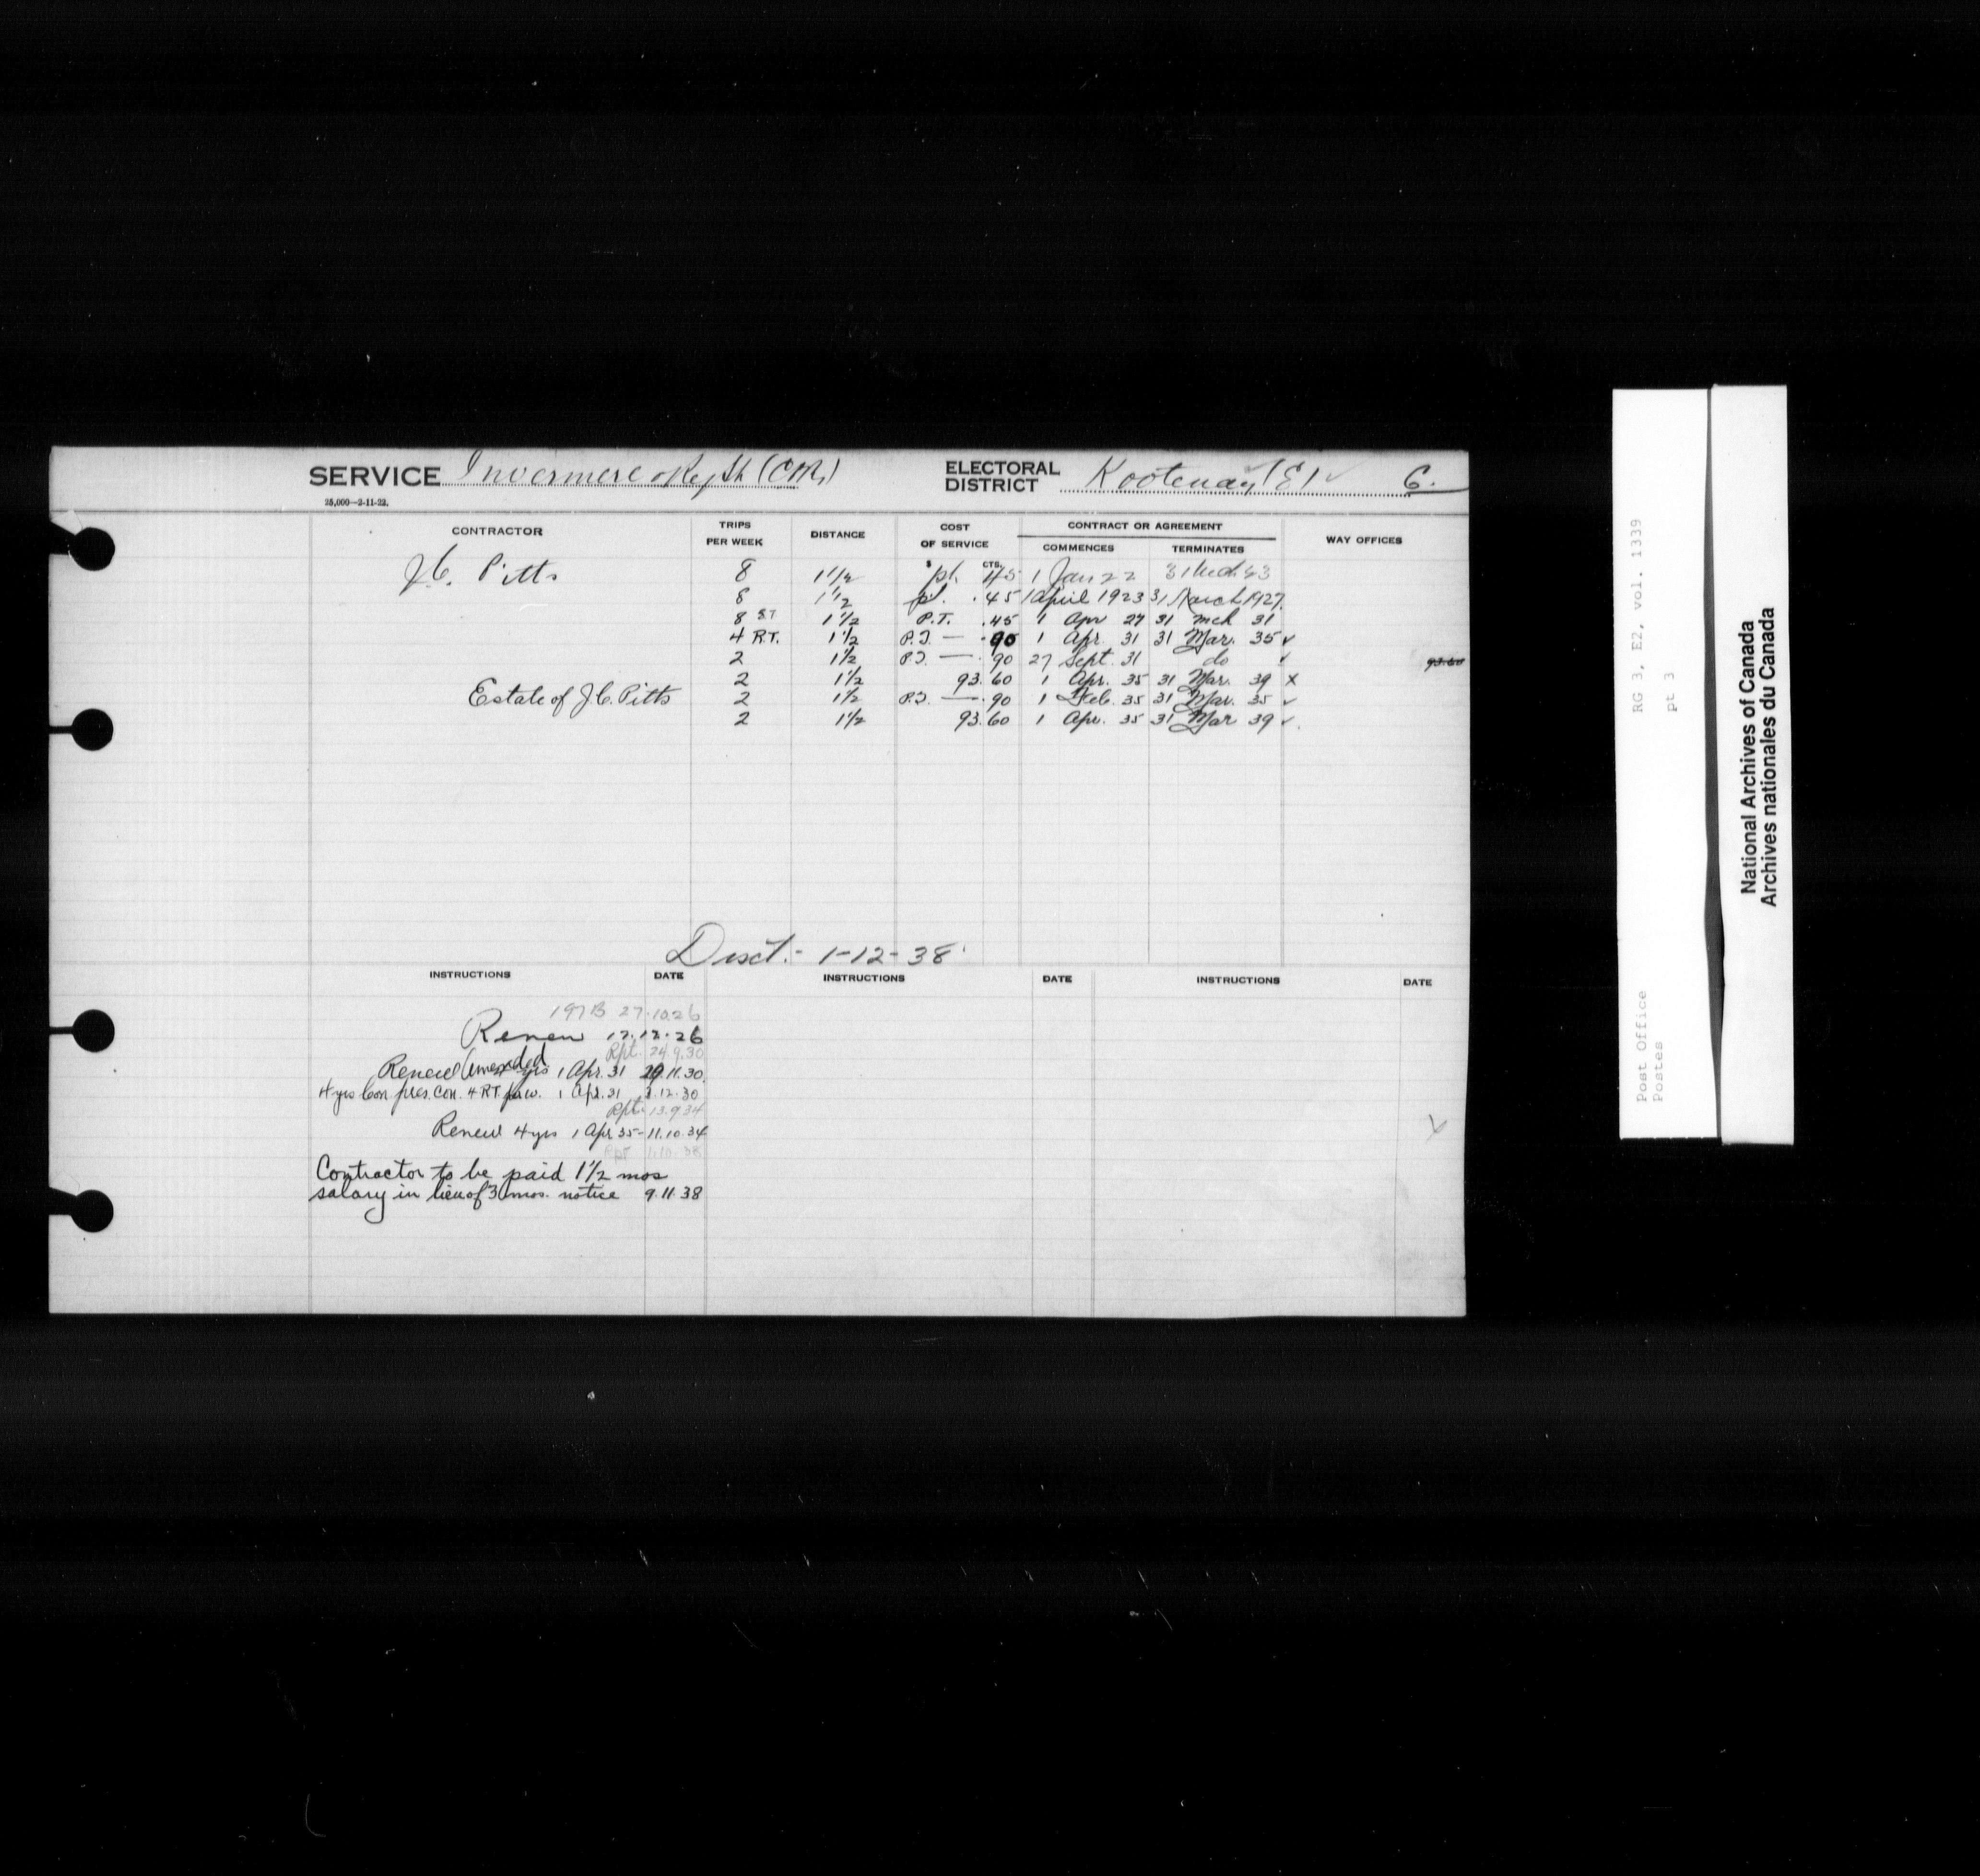 SERVICE Invermere & Ry Stn (C.P.R.) ELECTORAL DISTRICT Kootenay (E) C.
25,000—2-11-22.
CONTRACTOR TRIPS PER WEEK DISTANCE COST OF SERVICE CONTRACT OR AGREEMENT WAY OFFICES
$ CTS. COMMENCES TERMINATES
J.C. Pitts 8 1 1/2 pt. 45 1 Jan 22 31 Mch 23
8 1 1/2 pt. .45 1 April 1923 31 March 1927
8 ST 1 1/2 P.T. .45 1 Apr 27 31 Mch 31
4 R.T. 1 1/2 P.T. — .90 1 Apr. 31 31 Mar. 35 ✓
2 1 1/2 P.T. — .90 27 Sept. 31 do ✓ 93.60
2 1 1/2 93.60 1 Apr. 35 31 Mar. 39 x
Estate of J.C. Pitts 2 1 1/2 P.T. — .90 1 Feb. 35 31 Mar. 35 ✓
2 1 1/2 93.60 1 Apr. 35 31 Mar 39 ✓
Disct. - 1-12-38
INSTRUCTIONS DATE INSTRUCTIONS DATE INSTRUCTIONS DATE
197B 27.10.26
Renew 17.12.26
Rpt. 24.9.30
Renew Amended 4 yrs 1 Apr. 31 29.11.30
4 yrs Con. pres. con. 4 R.T. p.w. 1 Apr. 31 3.12.30
Rpt. 13.9.34
Renew 4 yrs 1 Apr 35 - 11.10.34
Rpt 1.10.38
Contractor to be paid 1 1/2 mos
salary in lieu of 3 mos. notice 9.11.38
RG 3, E2, vol. 1339
pt 3
Post Office
Postes
National Archives of Canada
Archives nationales du Canada